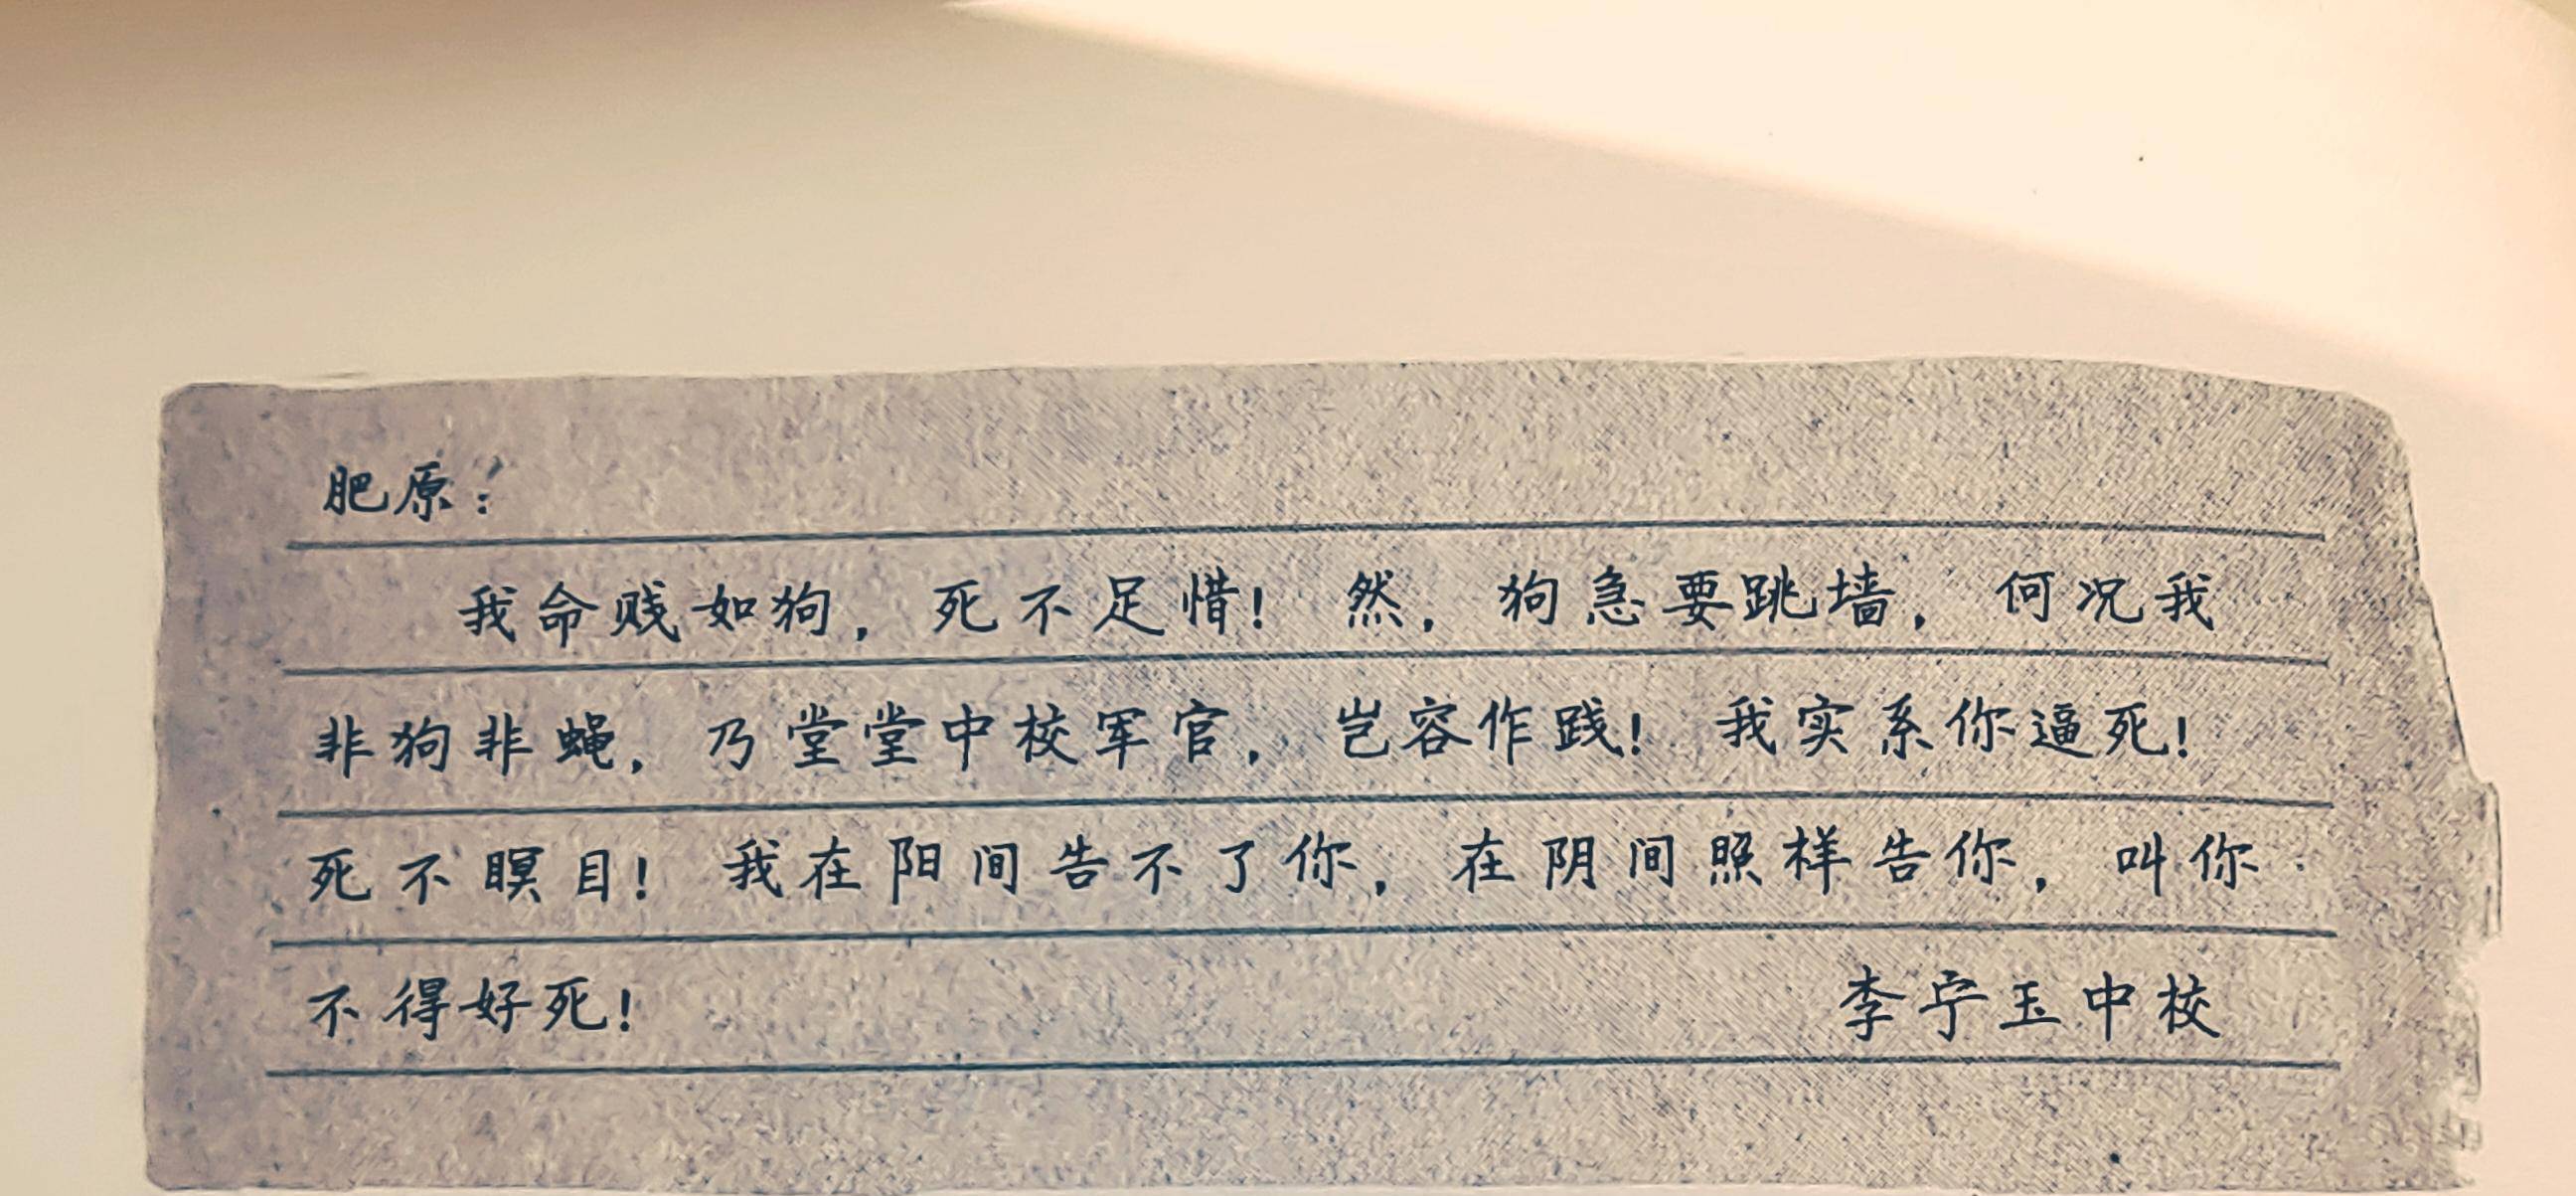 肥原：
我命贱如狗，死不足惜！然，狗急要跳墙，何况我
非狗非蝇，乃堂堂中校军官，岂容作践！我实系你逼死！
死不瞑目！我在阳间告不了你，在阴间照样告你，叫你
不得好死！ 李宁玉中校